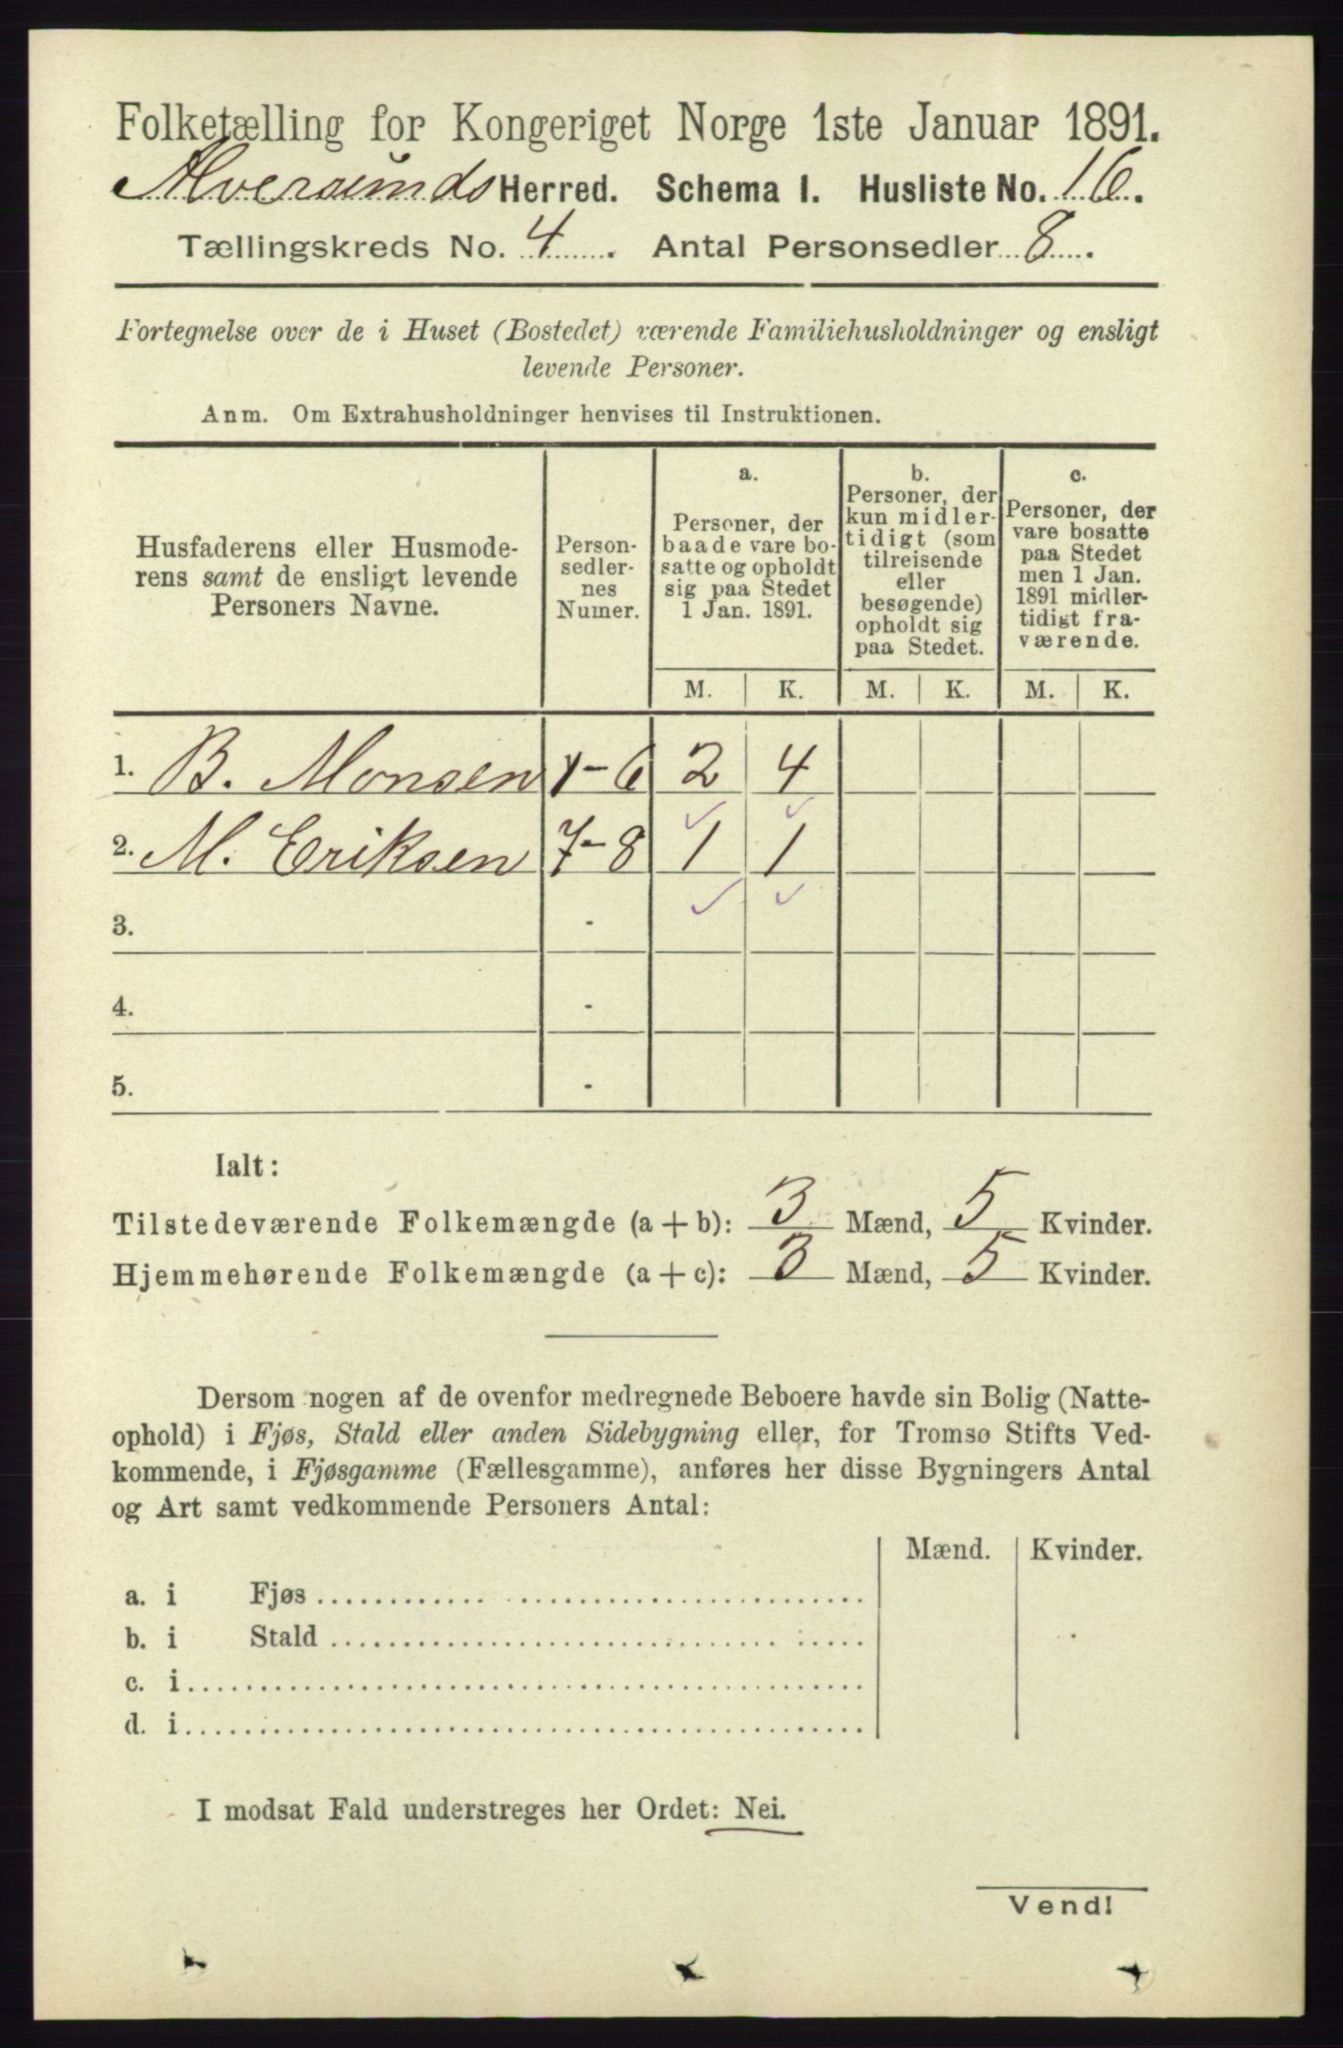 Folketælling for Kongeriget Norge 1ste Januar 1891.
Alversunds Herred. Schema I. Husliste No. 16.
Tællingskreds No. 4. Antal Personsedler 8.
Fortegnelse over de i Huset (Bostedet) værende Familiehusholdninger og ensligt
levende Personer.
Anm. Om Extrahusholdninger henvises til Instruktionen.
Husfaderens eller Husmode-
rens samt de ensligt levende
Personers Navne.
Person-
sedler-
nes
Numer.
a.
Personer, der
baade vare bo-
satte og opholdt
sig paa Stedet
1 Jan. 1891.
b.
Personer, der
kun midler-
tidigt (som
tilreisende
eller
besøgende)
opholdt sig
paa Stedet.
c.
Personer, der
vare bosatte
paa Stedet
men 1 Jan.
1891 midler-
tidigt fra-
værende.
M. K. M. K. M. K.
1. B. Monsen 1-6 2 4
2. M. Eriksen 7-8 1 1
3. -
4. -
5. -
Ialt:
Tilstedeværende Folkemængde (a + b): 3 Mænd, 5 Kvinder.
Hjemmehørende Folkemængde (a + c): 3 Mænd, 5 Kvinder.
Dersom nogen af de ovenfor medregnede Beboere havde sin Bolig (Natte-
ophold) i Fjøs, Stald eller anden Sidebygning eller, for Tromsø Stifts Ved-
kommende, i Fjøsgamme (Fællesgamme), anføres her disse Bygningers Antal
og Art samt vedkommende Personers Antal:
Mænd. Kvinder.
a. i Fjøs
b. i Stald
c. i
d. i
I modsat Fald understreges her Ordet: Nei.
Vend!